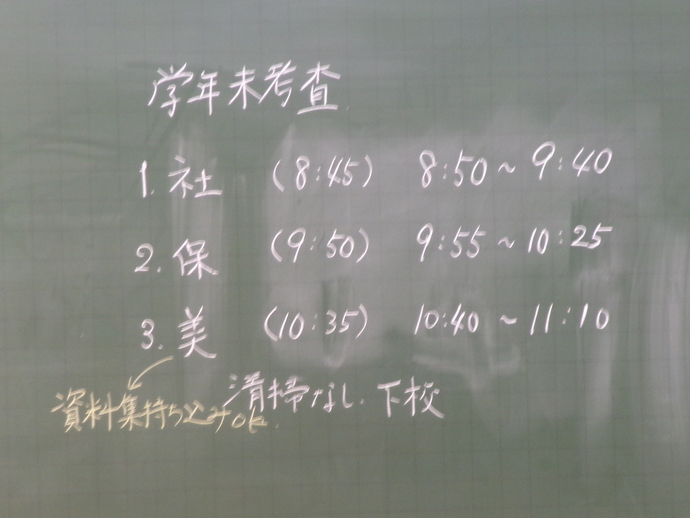 学年末考査
1. 社 (8:45) 8:50~9:40
2. 保 (9:50) 9:55~10:25
3. 美 (10:35) 10:40~11:10
資料集持ち込みok.
清掃なし. 下校